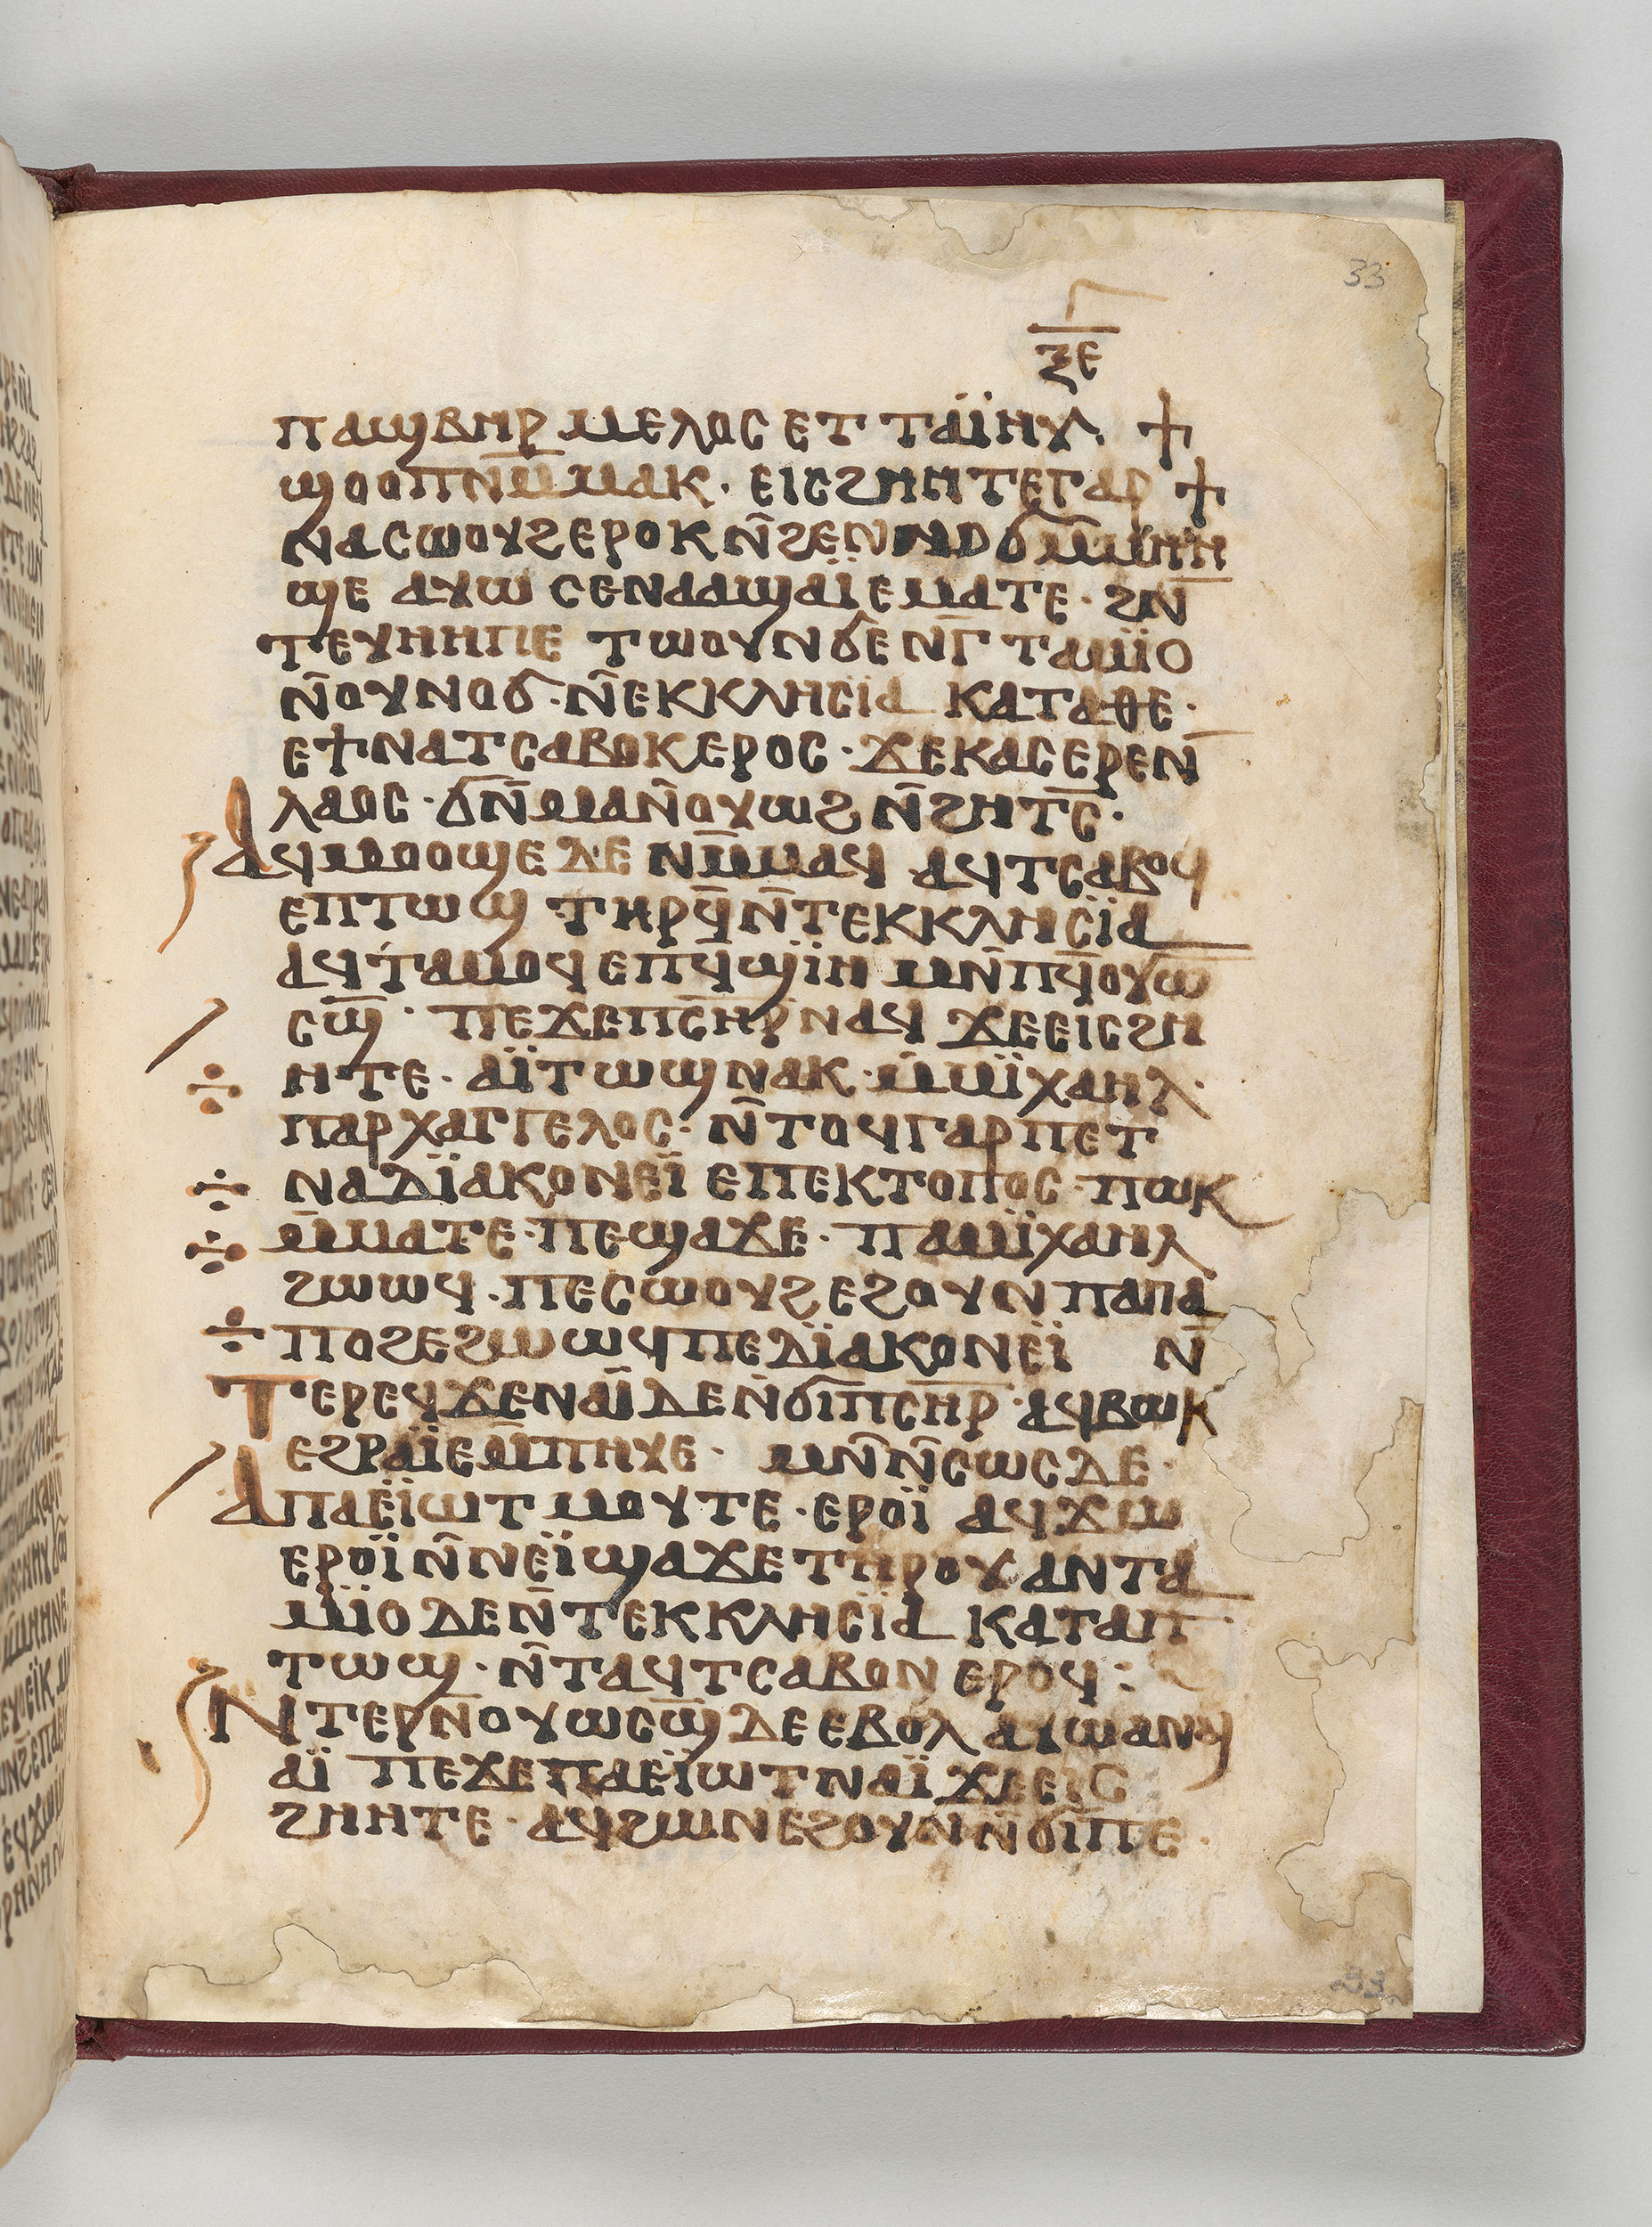 33
ⲝⲉ
ⲡⲁϣⲃⲏⲣ ⲙⲉⲗⲟⲥ ⲉⲧ ⲧⲁⲓ̈ⲏⲩ. ϯ
ϣⲟⲟⲡⲛⲙ̅ⲙⲁⲕ· ⲉⲓⲥϩⲏⲏⲧⲉⲅⲁⲣ ϯ
ⲛⲁⲥⲱⲟⲩϩⲉⲣⲟⲕⲛ̅ϩⲉⲛⲛⲟϭⲙ̅ⲙⲏⲏ
ϣⲉ ⲁⲩⲱ ⲥⲉⲛⲁⲁϣⲁⲓ̈ⲉⲙⲁⲧⲉ· ϩⲛ̅
ⲧⲉⲩⲏⲏⲡⲉ ⲧⲱⲟⲩⲛϭⲉⲛⲅ̅ ⲧⲁⲙⲓ̈ⲟ
ⲛ̅ⲟⲩⲛⲟϭ·ⲛ̅ⲉⲕⲕⲗⲏⲥⲓ̈ⲁ ⲕⲁⲧⲁⲑⲉ·
ⲉϯⲛⲁⲧⲥⲁⲃⲟⲕⲉⲣⲟⲥ· ϫⲉⲕⲁⲥⲉⲣⲉⲛ̅
ⲗⲁⲟⲥ·ϭⲛ̅ⲙⲁⲛ̅ⲟⲩⲱϩⲛ̅ϩⲏⲧⲥ̅·
ⲁϥⲙⲟⲟϣⲉⲇⲉ ⲛⲙ̅ⲙⲁϥ ⲁϥⲧⲥⲁⲃⲟϥ
ⲉⲡⲧⲱϣ ⲧⲏⲣϥ̅ⲛ̅ⲧⲉⲕⲕⲗⲏⲥⲓ̈ⲁ
ⲁϥⲧⲁⲙⲟϥⲉⲡϥ̅ϣⲓ̈ⲏ ⲙⲛ̅ⲡϥ̅ⲟⲩⲱ
ⲥϣ̅· ⲡⲉϫⲉⲡⲥⲏ̅ⲣⲛⲁϥ ϫⲉⲉⲓⲥϩⲏ
ⲏⲧⲉ· ⲁⲓ̈ⲧⲱϣⲛⲁⲕ·ⲙ̅ⲙⲓ̈ⲭⲁⲏⲗ·
ⲡⲁⲣⲭⲁⲅⲅⲉⲗⲟⲥ·ⲛ̅ⲧⲟϥⲅⲁⲣⲡⲉⲧ
ⲛⲁⲇⲓ̈ⲁⲕⲟⲛⲉⲓ̈ ⲉⲡⲉⲕⲧⲟⲡⲟⲥ·ⲡⲱⲕ
ⲙ̅ⲙⲁⲧⲉ·ⲡⲉϣⲁϫⲉ· ⲡⲁⲙⲓ̈ⲭⲁⲏⲗ
ϩⲱⲱϥ·ⲡⲉⲥⲱⲟⲩϩⲉϩⲟⲩⲛⲡⲁⲡⲁ
ⲡⲟϩⲉϩⲱⲱϥⲡⲉⲇⲓ̈ⲁⲕⲟⲛⲉⲓ̈ ⲛ̅
ⲧⲉⲣⲉϥϫⲉⲛⲁⲓ̈ⲇⲉⲛ̅ϭⲓⲡⲥⲏ̅ⲣ·ⲁϥⲃⲱⲕ
ⲉϩⲣⲁⲓ̈ⲉⲙ̅ⲡⲏⲩⲉ· ⲙⲛ̅ⲛ̅ⲥⲱⲥⲇⲉ·
ⲁⲡⲁⲉⲓ̈ⲱⲧ ⲙⲟⲩⲧⲉ·ⲉⲣⲟⲓ̈ ⲁϥϫⲱ
ⲉⲣⲟⲓ̈ⲛ̅ⲛⲉⲓ̈ϣⲁϫⲉ ⲧⲏⲣⲟⲩ ⲁⲛⲧⲁ
ⲙⲓ̈ⲟ ⲇⲉⲛ̅ⲧⲉⲕⲕⲗⲏⲥⲓ̈ⲁ ⲕⲁⲧⲁⲡ
ⲧⲱϣ·ⲛ̅ⲧⲁϥⲧⲥⲁⲃⲟⲛ ⲉⲣⲟϥ:
ⲛⲧⲉⲣⲛ̅ⲟⲩⲱⲥϣ̅ ⲇⲉⲉⲃⲟⲗ ⲁⲩⲱⲁⲛϥ
ⲁⲓ̈ ⲡⲉϫⲉⲡⲁⲉⲓ̈ⲱⲧⲛⲁⲓ̈ ϫⲉⲉⲓⲥ
ϩⲏⲏⲧⲉ·ⲁϥϩⲱⲛⲉϩⲟⲩⲛⲛ̅ϭⲓⲡⲉ·